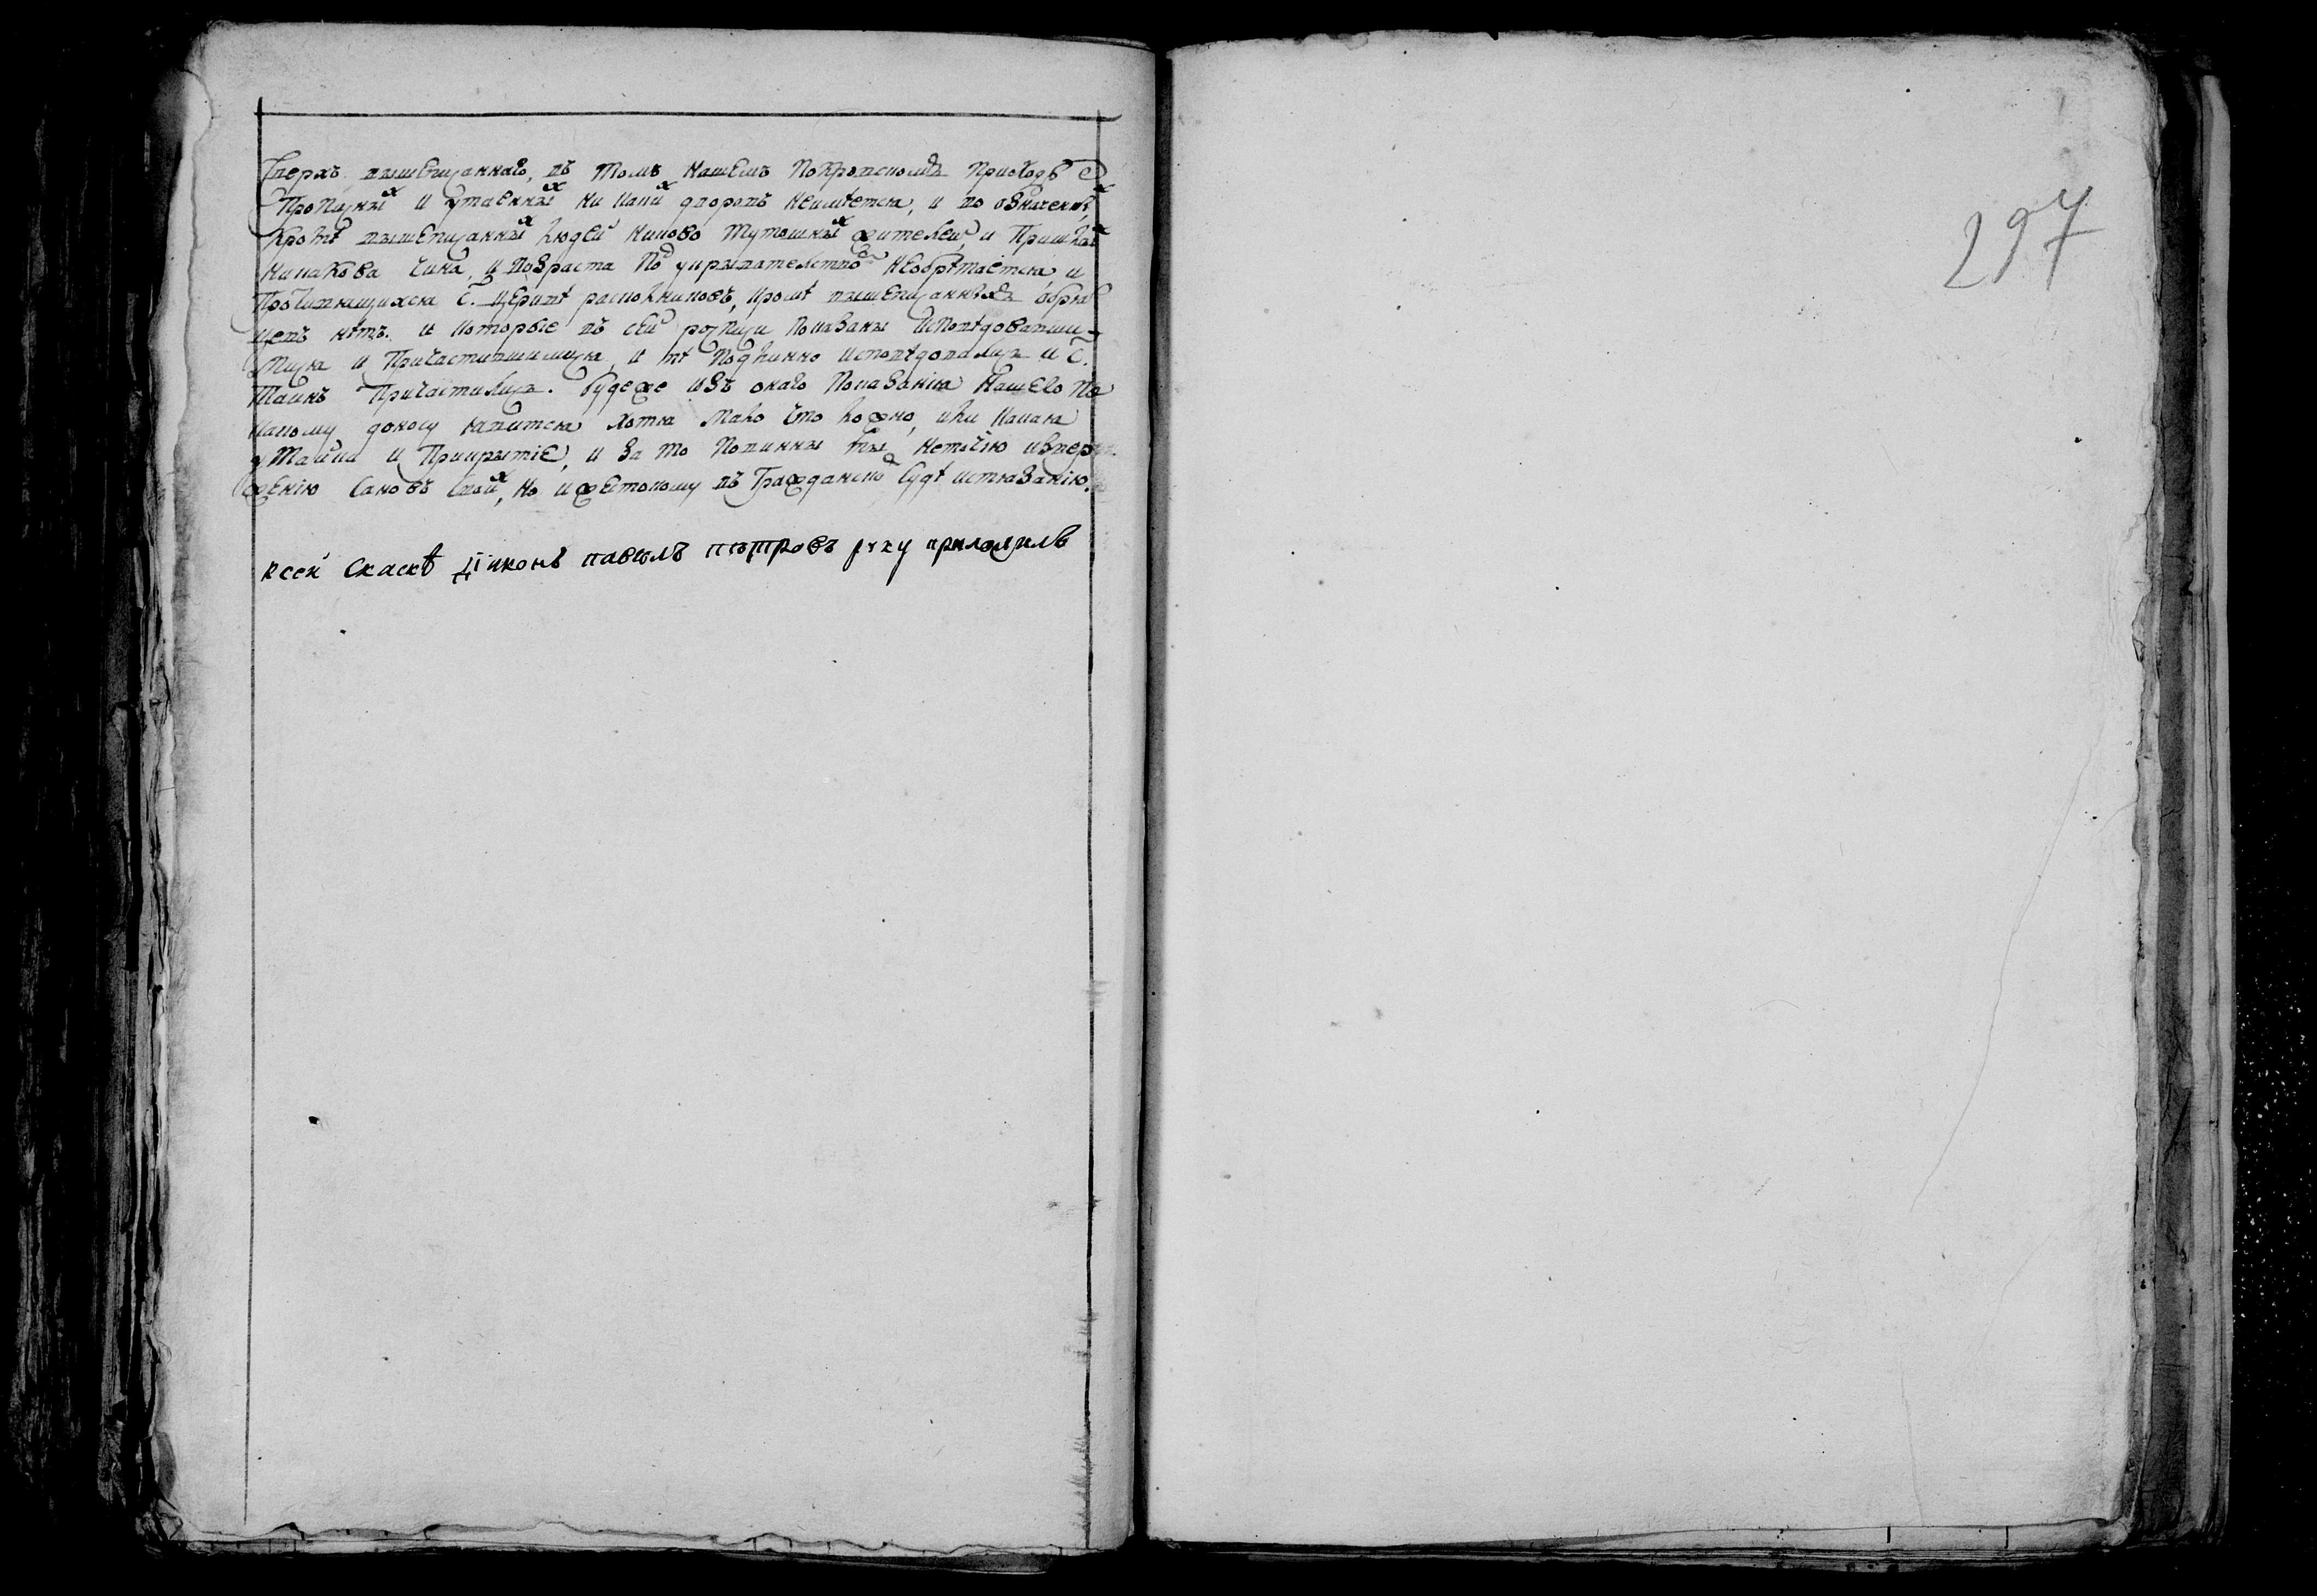 Сверхъ вышеписаннаго, въ томъ нашемъ Покровскомъ приходѣ
прописныхъ и утаенныхъ ни какихъ дворовъ неимѣется, и во означенныхъ
кромѣ вышеписанныхъ людей никово тутошныхъ жителей, и пришлыхъ
никакова чина, и возраста под укрывателствомъ необрѣтается, и
противящихся с. церкви расколниковъ, кромѣ вышеписанныхъ
нѣтъ. и которые въ сей росписи показаны исповѣдовавши-
мися и причастившимися, и тѣ подлинно исповѣдовались и с.
таинъ причастились. Будеже изъ онаго показанія нашего по
какому доносу явится хотя мало что ложно, или какая
утайка и прикрытіе, и за то повинны мы нетокмо извер
женію сановъ своихъ, но и жестокому въ гражданскомъ судѣ истязанію.
ксей скаскѣ діаконъ павелъ петровъ руку приложилъ
297